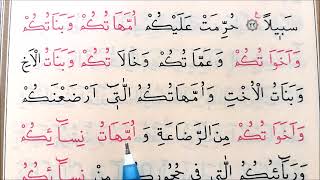 سَبٖيلاً ۟ ﴿٢٢﴾ حُرِّمَتْ عَلَيْكُمْ اُمَّهَاتُكُمْ وَبَنَاتُكُمْ
وَاَخَوَاتُكُمْ وَعَمَّاتُكُمْ وَخَالَاتُكُمْ وَبَنَاتُ الْاَخِ
وَبَنَاتُ الْاُخْتِ وَاُمَّهَاتُكُمُ الّٰتٖٓى اَرْضَعْنَكُمْ
وَاَخَوَاتُكُمْ مِنَ الرَّضَاعَةِ وَاُمَّهَاتُ نِسَٓائِكُمْ
وَرَبَٓائِبُكُمُ الّٰتٖى فٖى حُجُورِكُمْ مِنْ نِسَٓائِكُمُ